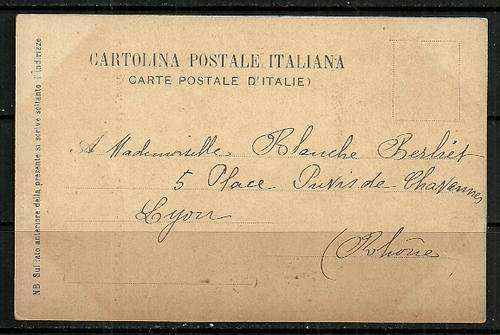 CARTOLINA POSTALE ITALIANA
(CARTE POSTALE D'ITALIE)
A Mademoiselle Blanche Berliet
5 Place Puvis de Chavannes
Lyon
(Rhône
NB. Sul lato anteriore della presente si scrive soltanto l'indirizzo